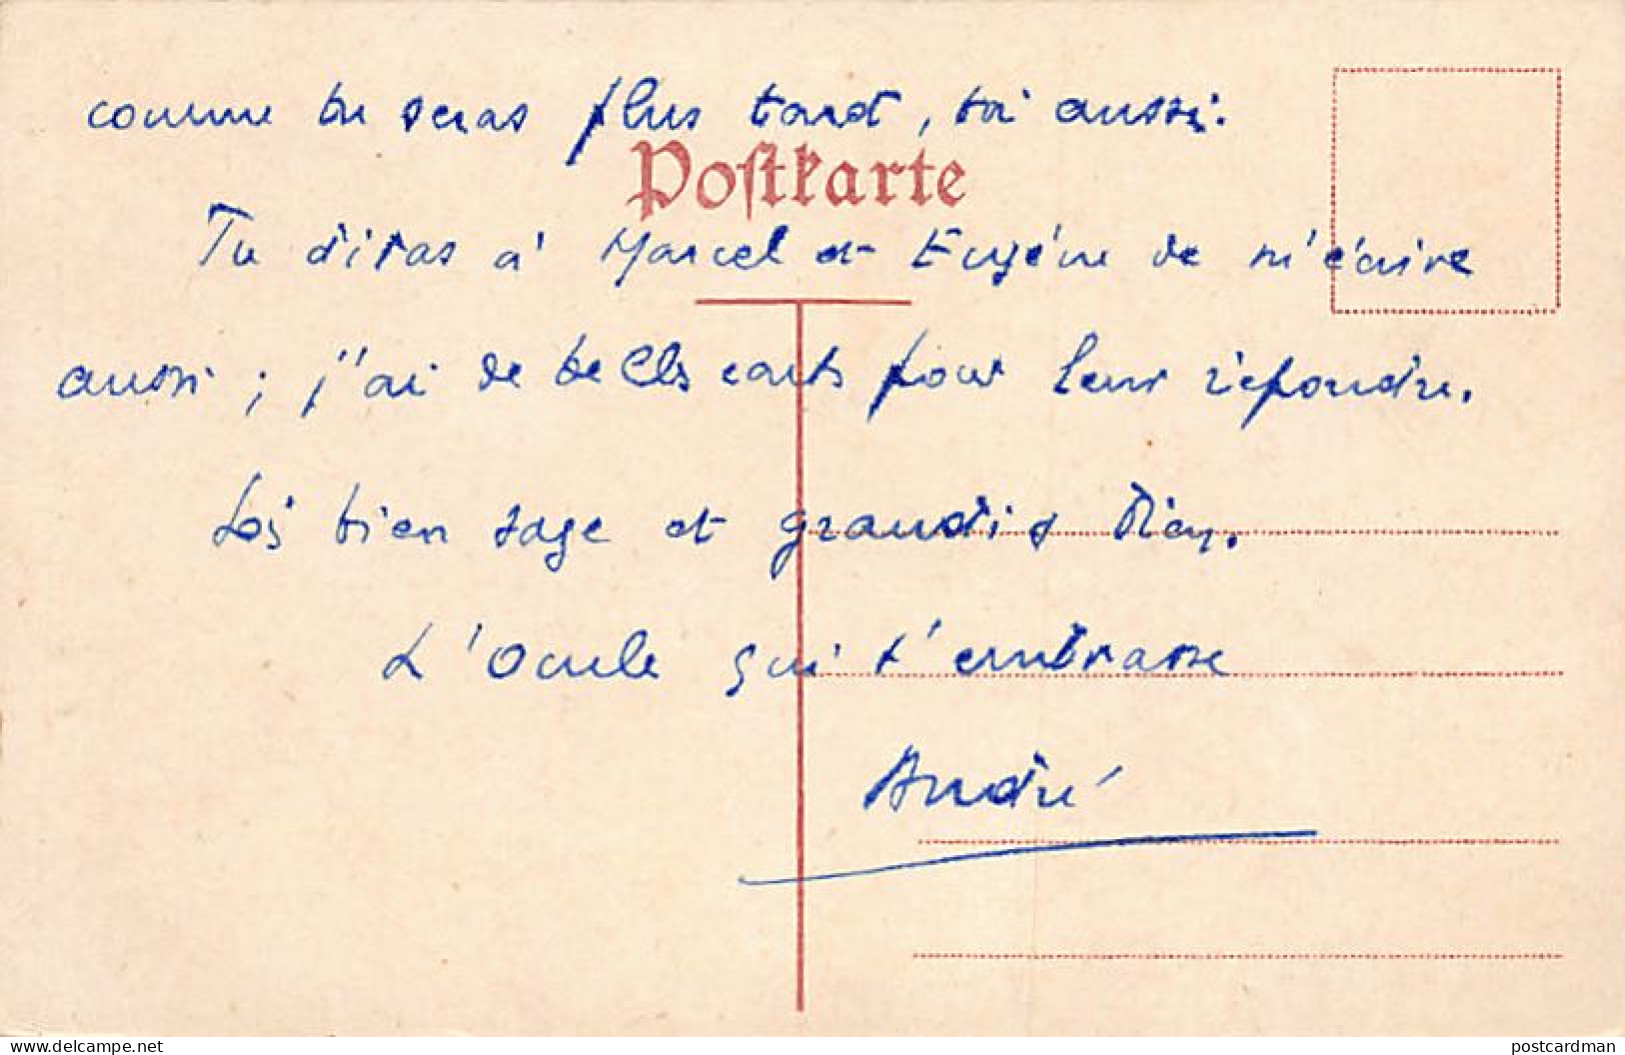 comme tu seras plus tard, toi aussi.
Postkarte
Tu diras à Marcel et Eugène de m'écrire
aussi ; j'ai de belles cartes pour leur répondre.
Sois bien sage et grandis bien.
L'Oncle qui t'embrasse
André
www.delcampe.net
postcardman